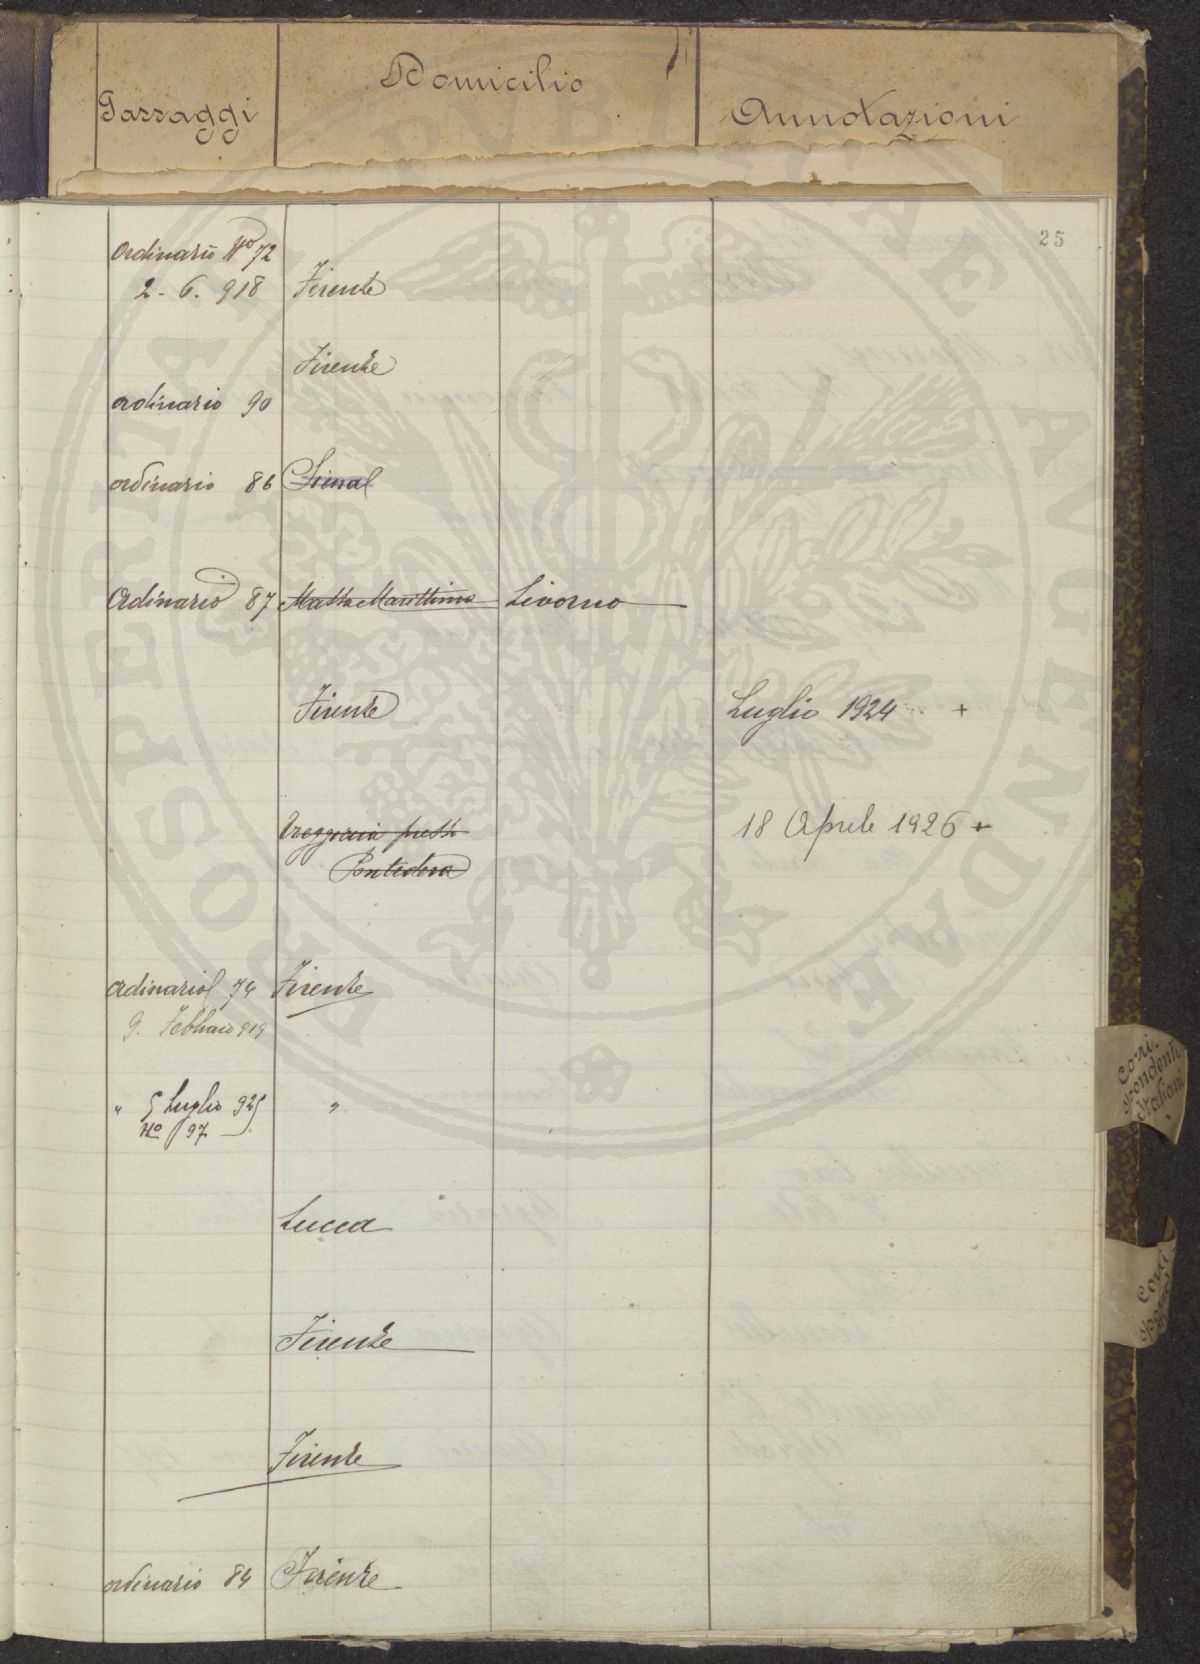 Passaggi
Domicilio
Annotazioni
25
Ordinario No 72
2 - 6. 918 Firenze
Firenze
ordinario 90
ordinario 86
Ordinario 87 Massa Marittima Livorno
Firenze Luglio 1924 +
presso 18 Aprile 1926 +
Pontedera
Ordinario 74 Firenze
9. Febbraio 919
" 5 Luglio 925 "
No 97
Lucca
Firenze
Firenze
ordinario 84 Firenze
Corri
spondenti
Italiani
Corri
PROSPERITATI PUBLICAE AUGENDAE